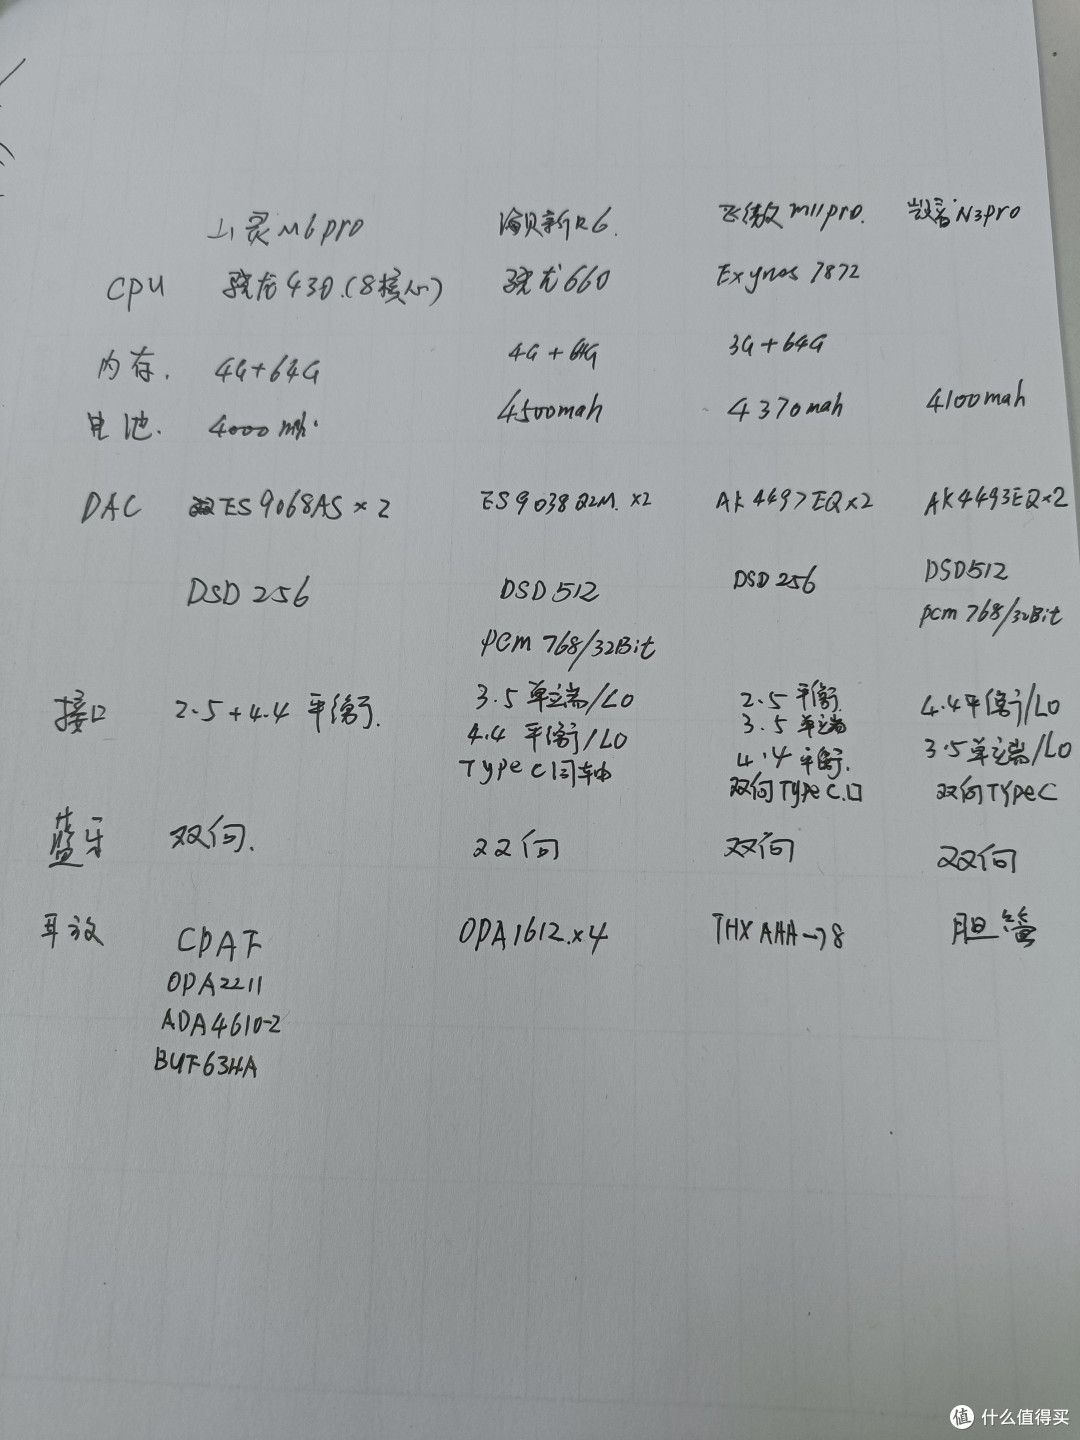 山灵M6pro 海贝新R6. 飞傲M11pro. 凯音N3pro
CPU 骁龙430.(8核心) 骁龙660 Exynos 7872
内存. 4G+64G 4G+64G 3G+64G
电池. 4000mh. 4500mah 4370mah 4100mah
DAC ES9068AS×2 ES9038Q2M.×2 AK4497EQ×2 AK4493EQ×2
DSD256 DSD512 DSD256 DSD512
pcm 768/32Bit pcm 768/32Bit
接口 2.5+4.4平衡. 3.5单端/LO 2.5平衡. 4.4平衡/LO
4.4平衡/LO 3.5单端 3.5单端/LO
TypeC同轴 4.4平衡. 双向TypeC
双向TypeC.口
蓝牙 双向. 双向 双向 双向
耳放 CPAF OPA1612.×4 THX AHA→78 胆管
OPA2211
ADA4610-2
BUF634A
什么值得买